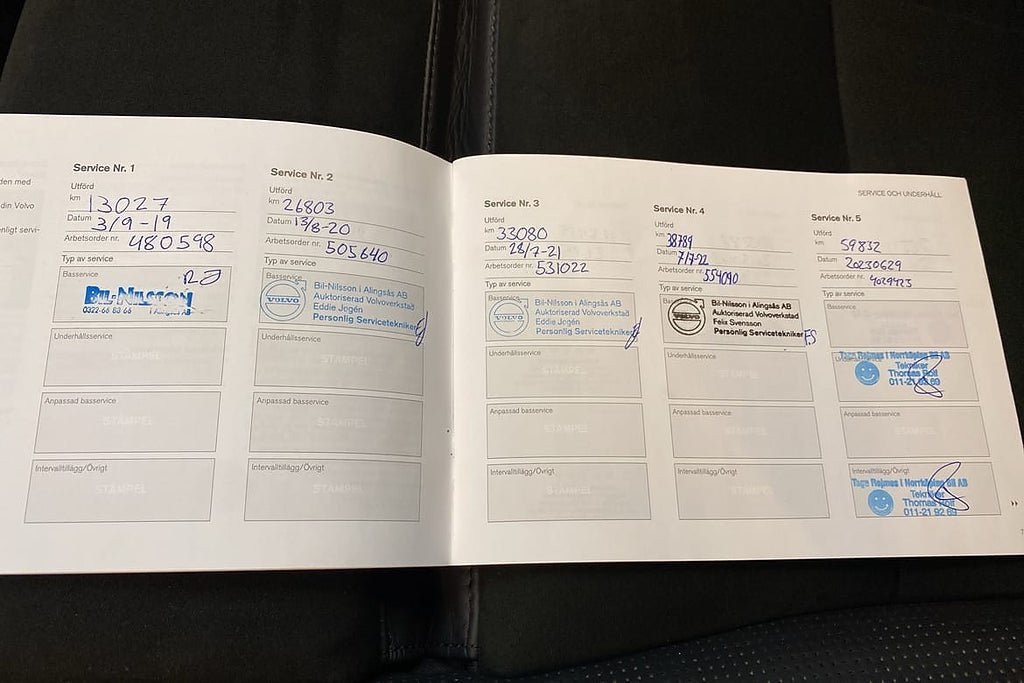 den med
din Volvo
enligt servi-
Service Nr. 1
Utförd
km 13027
Datum 3/9-19
Arbetsorder nr. 480598
Typ av service
Basservice
BIL-NILSSON
0322-66 83 66 i Alingsås AB
Underhållsservice
STÄMPEL
Anpassad basservice
STÄMPEL
Intervalltillägg/Övrigt
STÄMPEL
Service Nr. 2
Utförd
km 26803
Datum 13/8-20
Arbetsorder nr. 505640
Typ av service
Basservice
VOLVO
Bil-Nilsson i Alingsås AB
Auktoriserad Volvoverkstad
Eddie Jogén
Personlig Servicetekniker
Underhållsservice
STÄMPEL
Anpassad basservice
STÄMPEL
Intervalltillägg/Övrigt
STÄMPEL
Service Nr. 3
Utförd
km 33080
Datum 28/7-21
Arbetsorder nr. 531022
Typ av service
Basservice
VOLVO
Bil-Nilsson i Alingsås AB
Auktoriserad Volvoverkstad
Eddie Jogén
Personlig Servicetekniker
Underhållsservice
STÄMPEL
Anpassad basservice
STÄMPEL
Intervalltillägg/Övrigt
STÄMPEL
SERVICE OCH UNDERHÅLL
Service Nr. 4
Utförd
km 38789
Datum 7/7-22
Arbetsorder nr. 554090
Typ av service
Basservice
VOLVO
Bil-Nilsson i Alingsås AB
Auktoriserad Volvoverkstad
Felix Svensson
Personlig Servicetekniker FS
Underhållsservice
STÄMPEL
Anpassad basservice
STÄMPEL
Intervalltillägg/Övrigt
STÄMPEL
Service Nr. 5
Utförd
km 59832
Datum 20230629
Arbetsorder nr. 4029423
Typ av service
Basservice
Tage Rejmes i Norrköping Bil AB
Tekniker
Thomas Rolf
011-21 92 69
Anpassad basservice
STÄMPEL
Intervalltillägg/Övrigt
Tage Rejmes i Norrköping Bil AB
Tekniker
Thomas Rolf
011-21 92 69